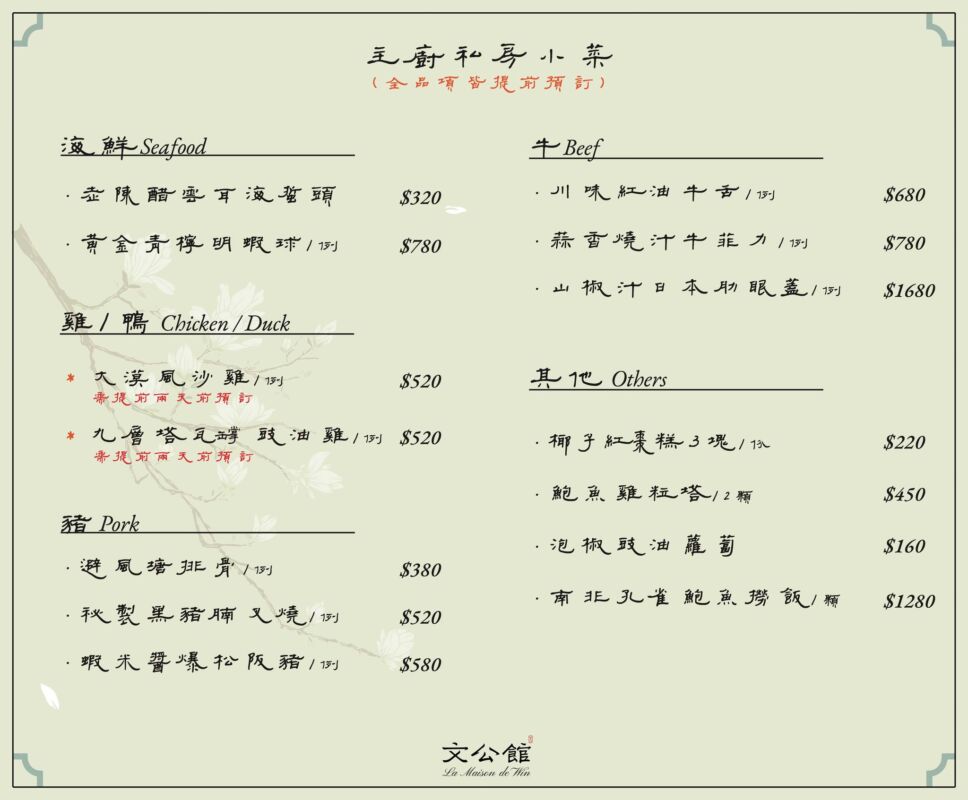 主廚私房小菜
(全品項皆提前預訂)
海鮮 Seafood
· 老陳醋雲耳海蜇頭 $320
· 黃金青檸明蝦球/例 $780
雞/鴨 Chicken / Duck
* 大漠風沙雞/例 $520
需提前兩天前預訂
* 九層塔瓦罉 豉油雞/例 $520
需提前兩天前預訂
豬 Pork
· 避風塘排骨/例 $380
· 祕製黑豬腩叉燒/例 $520
· 蝦米醬爆松阪豬/例 $580
牛 Beef
· 川味紅油牛舌/例 $680
· 蒜香燒汁牛菲力/例 $780
· 山椒汁日本肋眼蓋/例 $1680
其他 Others
· 椰子紅棗糕3塊/份 $220
· 鮑魚雞粒塔/2顆 $450
· 泡椒豉油蘿蔔 $160
· 南非孔雀鮑魚撈飯/顆 $1280
文公館
La Maison de Win